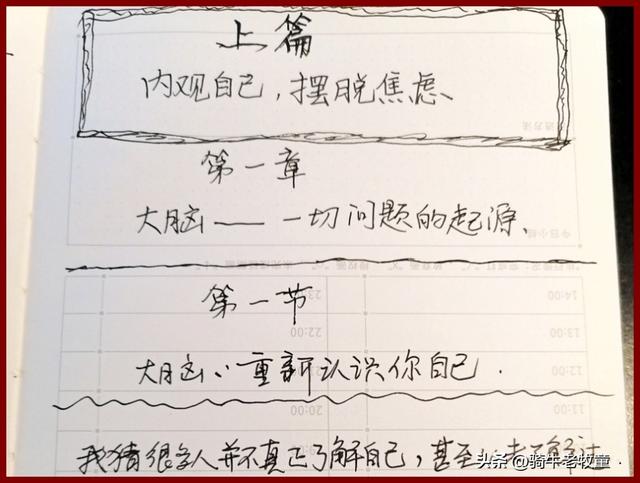 上篇
内观自己，摆脱焦虑、
第一章
大脑——一切问题的起源、
第一节
大脑：重新认识你自己．
我猜很多人并不真正了解自己，甚至
头条@骑牛老牧童
进方法
今日小结
14:00
23
13:00
22:00
12:00
11:00
20:00